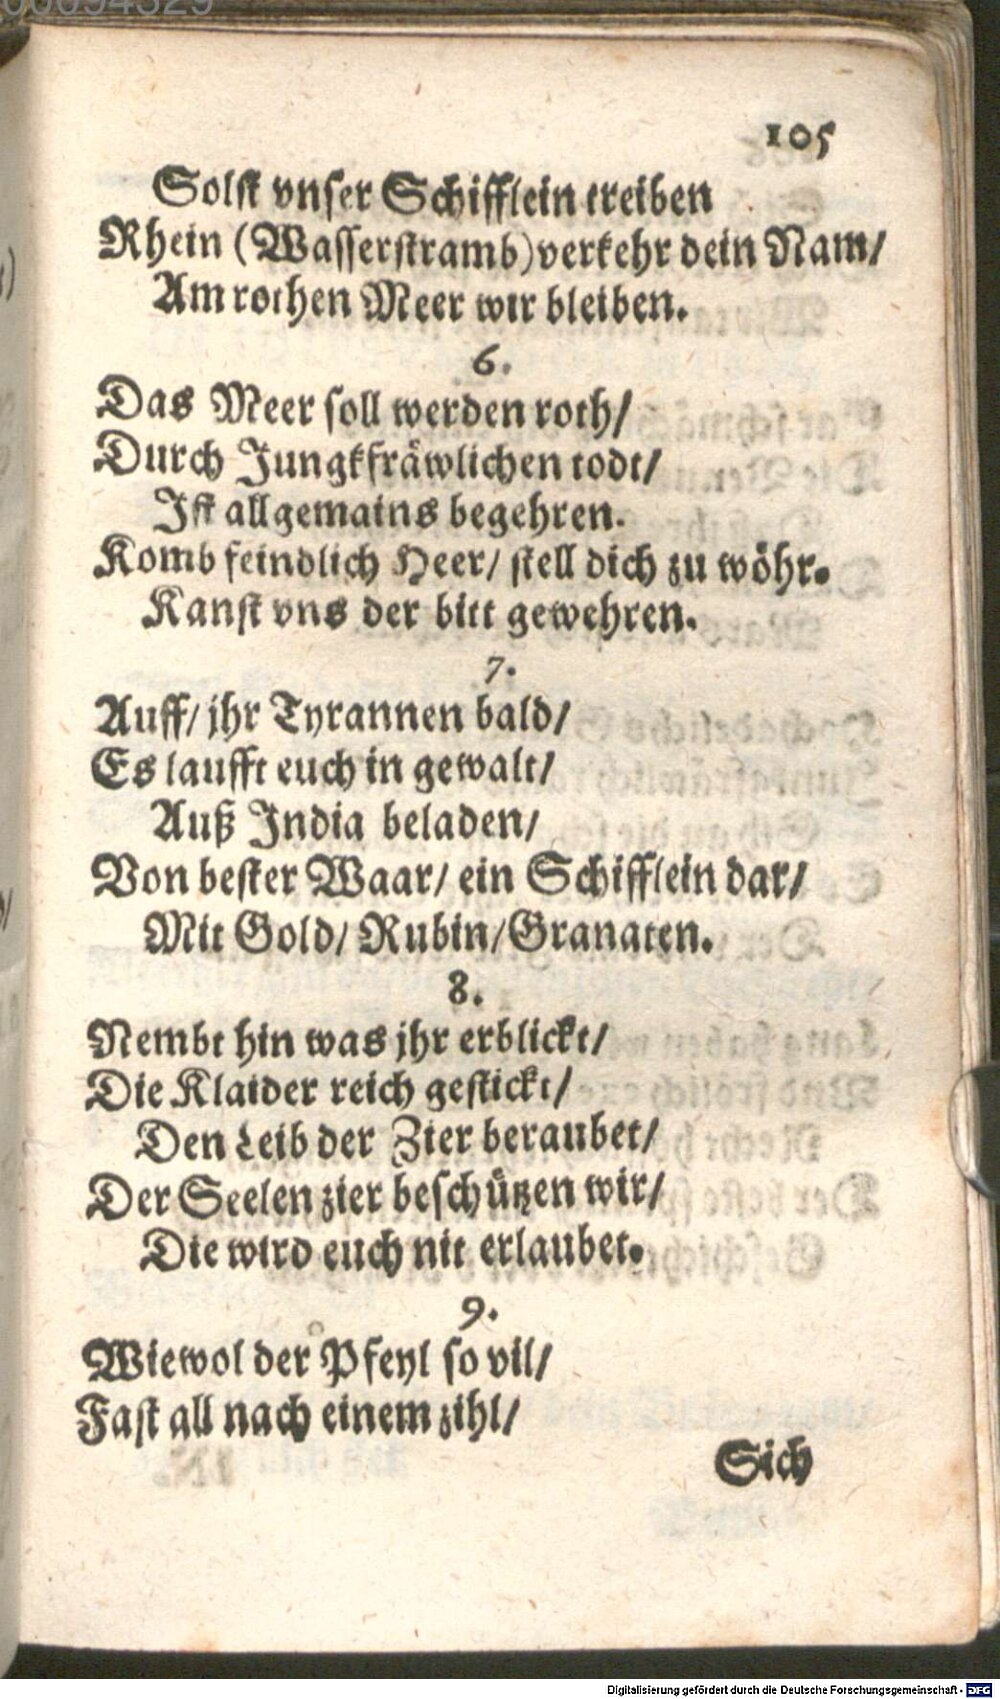 105
Solst vnser Schifflein treiben
Rhein (Wasserstramb) verkehr dein Nam/
Am rothen Meer wir bleiben.
6.
Das Meer soll werden roth/
Durch Jungkfräwlichen todt/
Ist allgemains begehren.
Komb feindlich Heer/ stell dich zu wöhr.
Kanst vns der bitt gewehren.
7.
Auff/ jhr Tyrannen bald/
Es laufft euch in gewalt/
Auß India beladen/
Von bester Waar/ ein Schifflein dar/
Mit Gold/ Rubin/ Granaten.
8.
Nembt hin was jhr erblickt/
Die Klaider reich gestickt/
Den Leib der Zier beraubet/
Der Seelen zier beschützen wir/
Die wird euch nit erlaubet.
9.
Wiewol der Pfeyl so vil/
Fast all nach einem zihl/
Sich
Digitalisierung gefördert durch die Deutsche Forschungsgemeinschaft - DFG